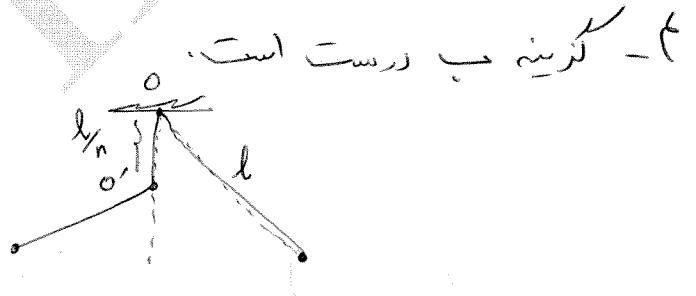 ۴- گزینه ب درست است.
O
l/n
O'
l